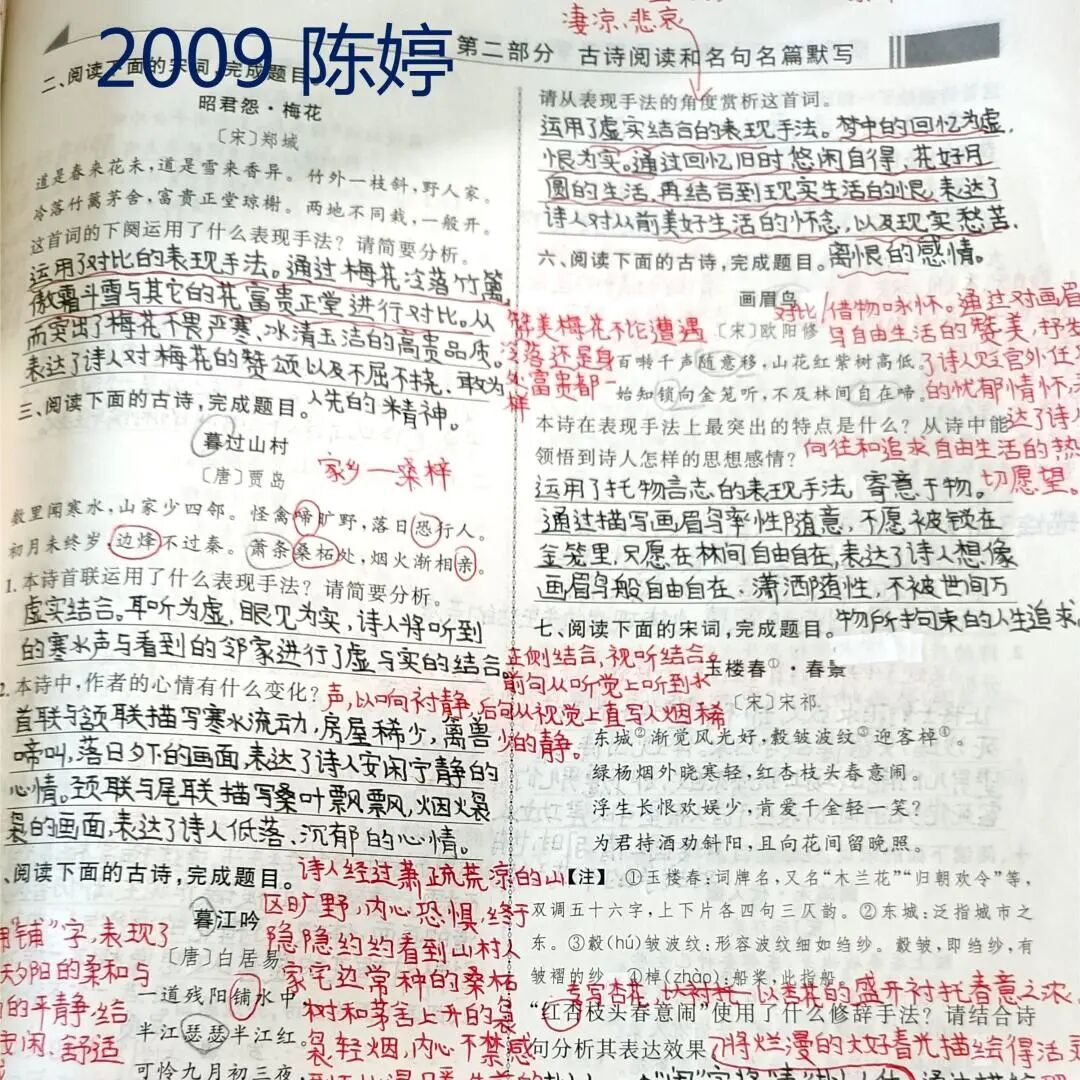 2009 陈婷
第二部分 古诗阅读和名句名篇默写
二、阅读下面的宋词,完成题目。
昭君怨·梅花
〔宋〕郑域
道是春来花未,道是雪来香异。竹外一枝斜,野人家。
冷落竹篱茅舍,富贵正堂琼榭。两地不同栽,一般开。
这首词的下阕运用了什么表现手法?请简要分析。
运用了对比的表现手法。通过梅花冷落竹篱,
傲霜斗雪与其它的花富贵正堂进行对比。从
而突出了梅花不畏严寒、冰清玉洁的高贵品质。
表达了诗人对梅花的赞颂以及不屈不挠、敢为
人先的精神。
赞美梅花不论遭遇
冷落还是身
处富贵都一
样
三、阅读下面的古诗,完成题目。
暮过山村
〔唐〕贾岛
家乡—桑梓
数里闻寒水,山家少四邻。怪禽啼旷野,落日恐行人。
初月未终岁,边烽不过秦。萧条桑柘处,烟火渐相亲。
1.本诗首联运用了什么表现手法?请简要分析。
虚实结合。耳听为虚,眼见为实,诗人将听到
的寒水声与看到的邻家进行了虚与实的结合。
正侧结合,视听结合
前句从听觉上听到水
声,以响衬静,后句从视觉上直写人烟稀
少的静。
2.本诗中,作者的心情有什么变化?
首联与颔联描写寒水流动,房屋稀少,离兽
啼叫,落日夕下的画面,表达了诗人安闲宁静的
心情。颈联与尾联描写桑叶飘飘,烟火袅
袅的画面,表达了诗人低落、沉郁的心情。
诗人经过萧疏荒凉的山
区旷野,内心恐惧,终于
隐隐约约看到山村人
家宅边常种的桑柘
树和茅舍上升的袅
袅轻烟,内心不禁感
、阅读下面的古诗,完成题目。
暮江吟
〔唐〕白居易
一道残阳铺水中,
半江瑟瑟半江红。
可怜九月初三夜,
用“铺”字,表现了
夕阳的柔和与
的平静,给
安闲、舒适
凄凉、悲哀
请从表现手法的角度赏析这首词。
运用了虚实结合的表现手法。梦中的回忆为虚,
恨为实。通过回忆旧时悠闲自得、花好月
圆的生活,再结合到现实生活的恨,表达了
诗人对从前美好生活的怀念,以及现实愁苦、
离恨的感情。
六、阅读下面的古诗,完成题目。
画眉鸟
〔宋〕欧阳修
百啭千声随意移,山花红紫树高低。
始知锁向金笼听,不及林间自在啼。
对比/借物咏怀。通过对画眉
鸟自由生活的赞美,抒发
了诗人贬官外任
的忧郁情怀,
达了诗人
向往和追求自由生活的热
切愿望。
本诗在表现手法上最突出的特点是什么?从诗中能
领悟到诗人怎样的思想感情?
运用了托物言志的表现手法,寄意于物。
通过描写画眉鸟率性随意,不愿被锁在
金笼里,只愿在林间自由自在,表达了诗人想像
画眉鸟般自由自在、潇洒随性,不被世间万
物所拘束的人生追求。
七、阅读下面的宋词,完成题目。
玉楼春①·春景
〔宋〕宋祁
东城②渐觉风光好,縠皱波纹③迎客棹④。
绿杨烟外晓寒轻,红杏枝头春意闹。
浮生长恨欢娱少,肯爱千金轻一笑?
为君持酒劝斜阳,且向花间留晚照。
【注】 ①玉楼春:词牌名,又名“木兰花”“归朝欢令”等,
双调五十六字,上下片各四句三仄韵。②东城:泛指城市之
东。③縠(hú)皱波纹:形容波纹细如绉纱。縠皱,即绉纱,有
皱褶的纱。④棹(zhào):船桨,此指船。
以杏花的盛开衬托春意之浓
“红杏枝头春意闹”使用了什么修辞手法?请结合诗
句分析其表达效果。
了将烂漫的大好春光描绘得活